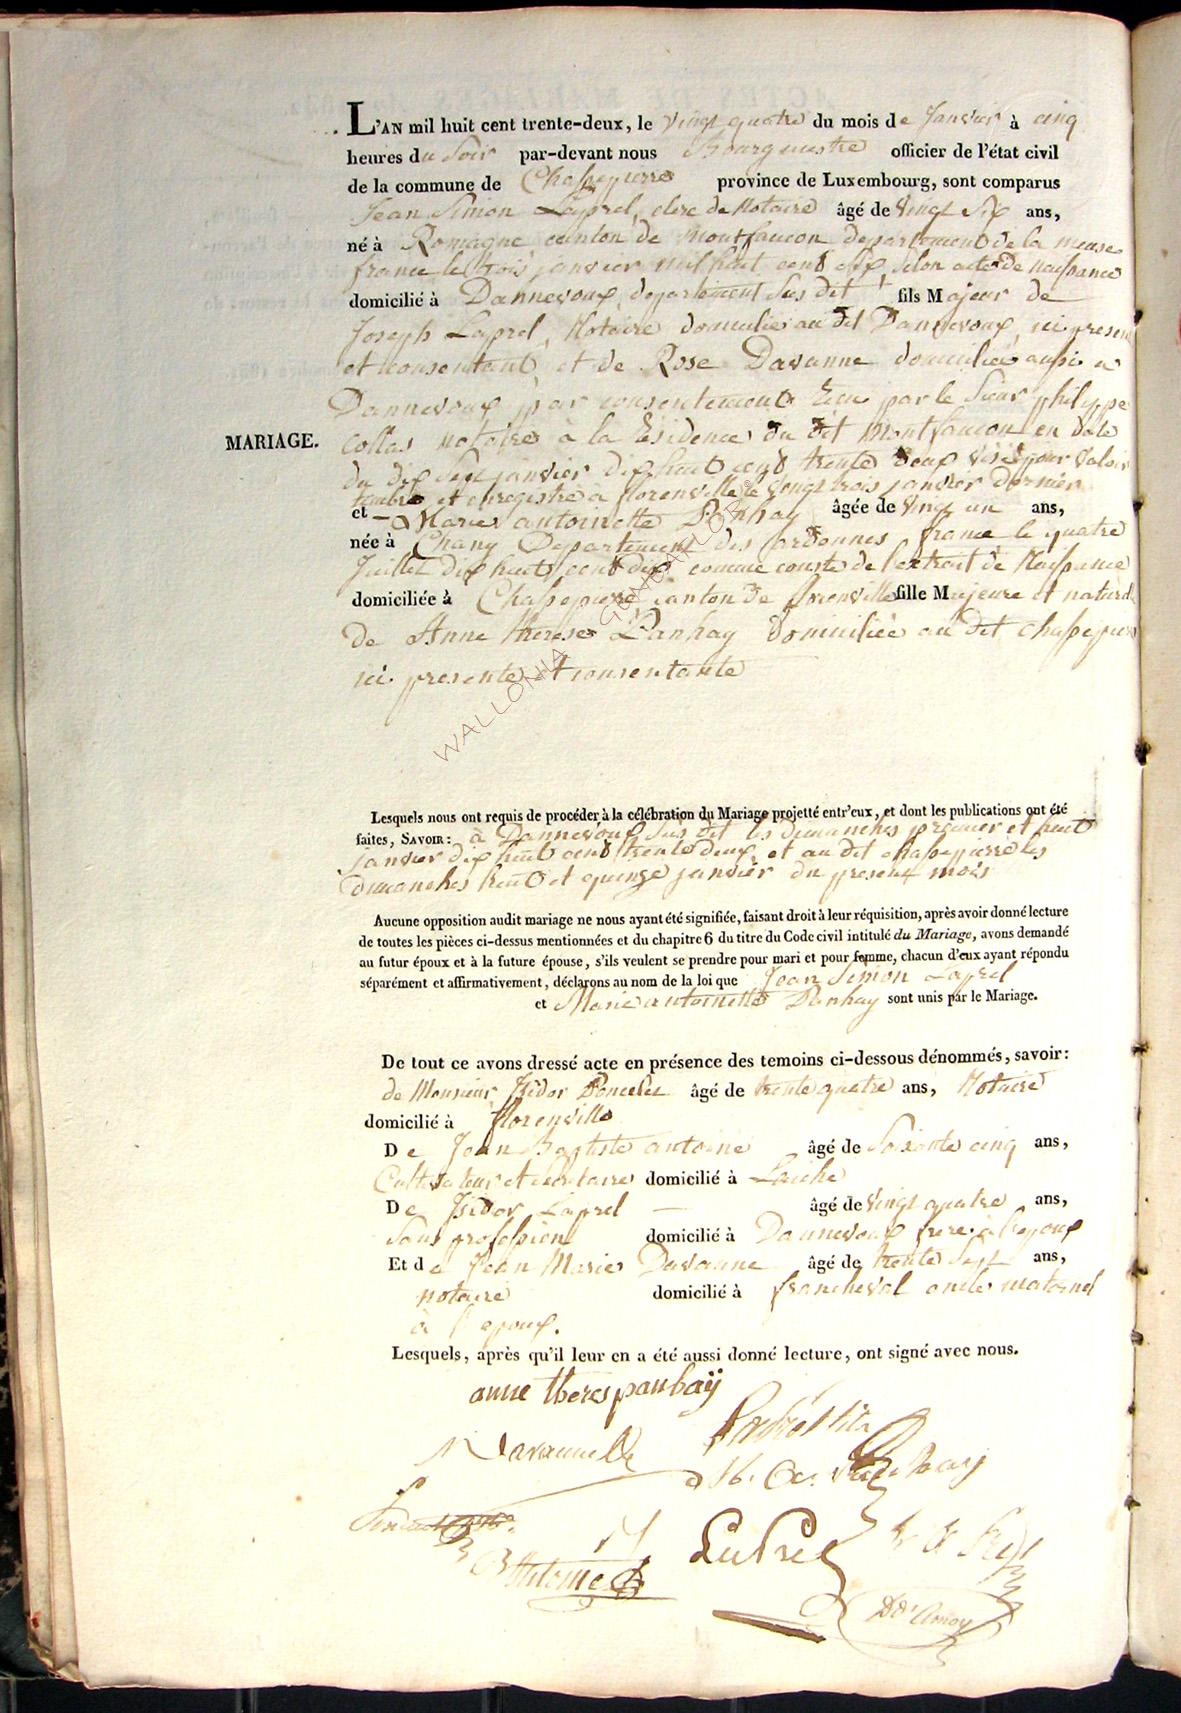 L'AN mil huit cent trente-deux, le vingt quatre du mois de Janvier à cinq
heures du soir par-devant nous Bourgmestre officier de l'état civil
de la commune de Chassepierre province de Luxembourg, sont comparus
Jean Simon Laprel, clerc de Notaire âgé de vingt six ans,
né à Romagne canton de montfaucon departement de la meuse
france le trois janvier mil huit cent six selon acte de naissance
domicilié à Dannevoux departement sus dit fils Majeur de
Joseph Laprel, Notaire domicilié au dit Dannevoux, ici present
et consentant et de Rose Davanne domiciliée aussi a
Dannevoux par consentement recu par le sieur philippe
Collas notaire à la residence du dit Montfaucon en date
du dix sept janvier dix huit cent trente deux visé pour valoir
timbre et enregistré à florenville le vingt trois janvier dernier
MARIAGE.
et Marie antoinette Panhay âgée de vingt un ans,
née à Chany Departement des ardennes france le quatre
Juillet dix huit cent dix comme conste de l'extrait de Naissance
domiciliée à Chassepierre canton de florenville fille Majeure et naturelle
de Anne therese Panhay domiciliée au dit chassepierre
ici presente et consentante
WALLONIA
Lesquels nous ont requis de procéder à la célébration du Mariage projetté entr'eux, et dont les publications ont été
faites, SAVOIR: à Dannevoux sus dit les dimanches premier et huit
janvier dix huit cent trente deux, et au dit chassepierre les
dimanches huit et quinze janvier du present mois
Aucune opposition audit mariage ne nous ayant été signifiée, faisant droit à leur réquisition, après avoir donné lecture
de toutes les pièces ci-dessus mentionnées et du chapitre 6 du titre du Code civil intitulé du Mariage, avons demandé
au futur époux et à la future épouse, s'ils veulent se prendre pour mari et pour femme, chacun d'eux ayant répondu
séparément et affirmativement, déclarons au nom de la loi que Jean Simon Laprel
et Marie antoinette Panhay sont unis par le Mariage.
De tout ce avons dressé acte en présence des temoins ci-dessous dénommés, savoir:
de Monsieur Isidor Poncelet âgé de trente quatre ans, Notaire
domicilié à florenville
De Jean Baptiste antoine âgé de Soixante cinq ans,
Cultivateur et secretaire domicilié à Laiche
De Isidor Laprel âgé de vingt quatre ans,
Sans profession domicilié à Dannevoux frere à l'epoux
Et de Jean Marie Davanne âgé de trente sept ans,
notaire domicilié à francheval oncle maternel
à l'epoux.
Lesquels, après qu'il leur en a été aussi donné lecture, ont signé avec nous.
anne theres panhaÿ
Davanne
Antoine
LaPrel